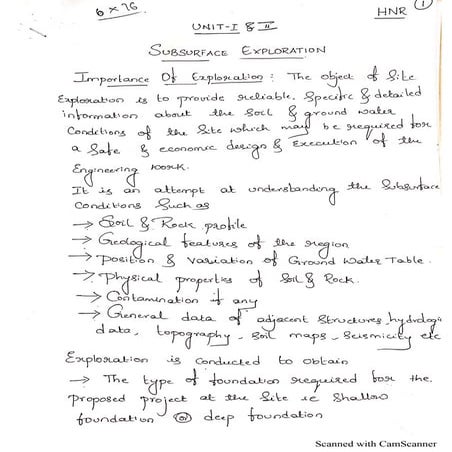 6 x 76
HNR 1
UNIT-I & II
SUBSURFACE EXPLORATION
Importance Of Exploration : The object of Site
Exploration is to provide reliable, Specific & detailed
information about the Soil & ground water
Conditions of the Site which may be required for
a Safe & economic design & Execution of the
Engineering work.
It is an attempt at understanding the Subsurface
Conditions Such as
→ Soil & Rock profile
→ Geological features of the region
→ Position & Variation of Ground Water Table.
→ Physical properties of Soil & Rock.
→ Contamination if any
→ General data of adjacent Structures, hydrology
data, topography, Soil maps, Seismicity etc
Exploration is conducted to obtain
→ The type of foundation required for the
Proposed project at the Site ie Shallow
foundation or deep foundation
Scanned with CamScanner